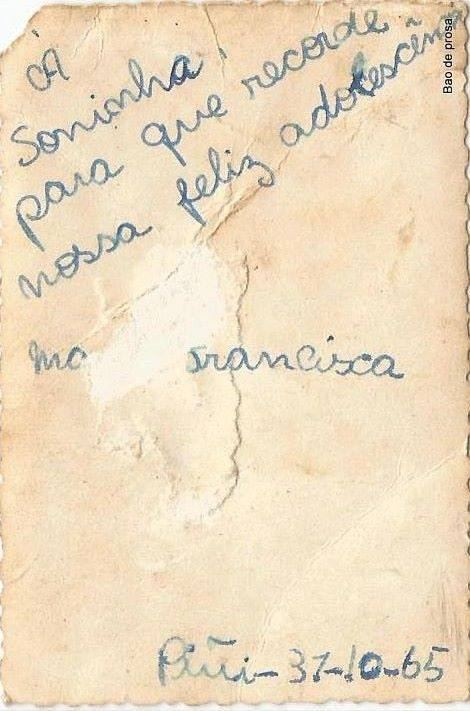 À
Soninha
para que recorde
nossa feliz adolescên
Ma Francisca
Piũi- 31-10-65
Bao de prosa